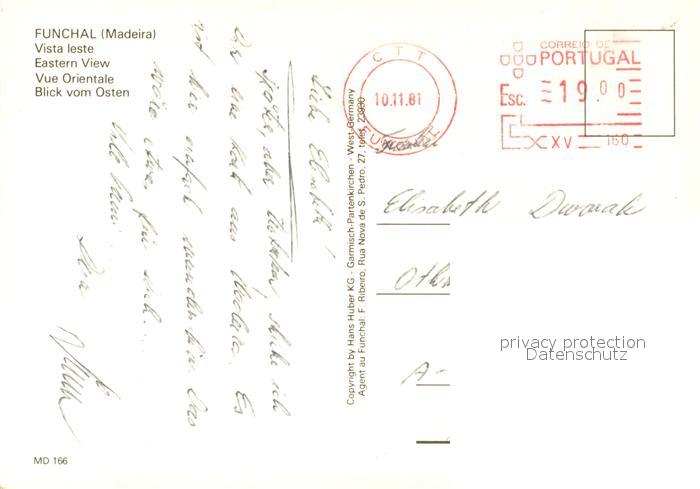 FUNCHAL (Madeira)
Vista leste
Eastern View
Vue Orientale
Blick vom Osten
Liebe Elisabeth!
Spät, aber doch, schicke ich
Dir eine Karte aus Madeira. Es
ist hier einfach wunderbar. Das
wäre etwas für dich...
Alles Liebe
Copyright by Hans Huber KG - Garmisch-Partenkirchen - West-Germany
Agent au Funchal: F. Ribeiro, Rua Nova de S. Pedro, 27, telef. 23930
CTT
10.11.81
Funchal
CORREIO DE
PORTUGAL
Esc. 19.00
XV 160
Elisabeth Dworak
A-
privacy protection
Datenschutz
MD 166